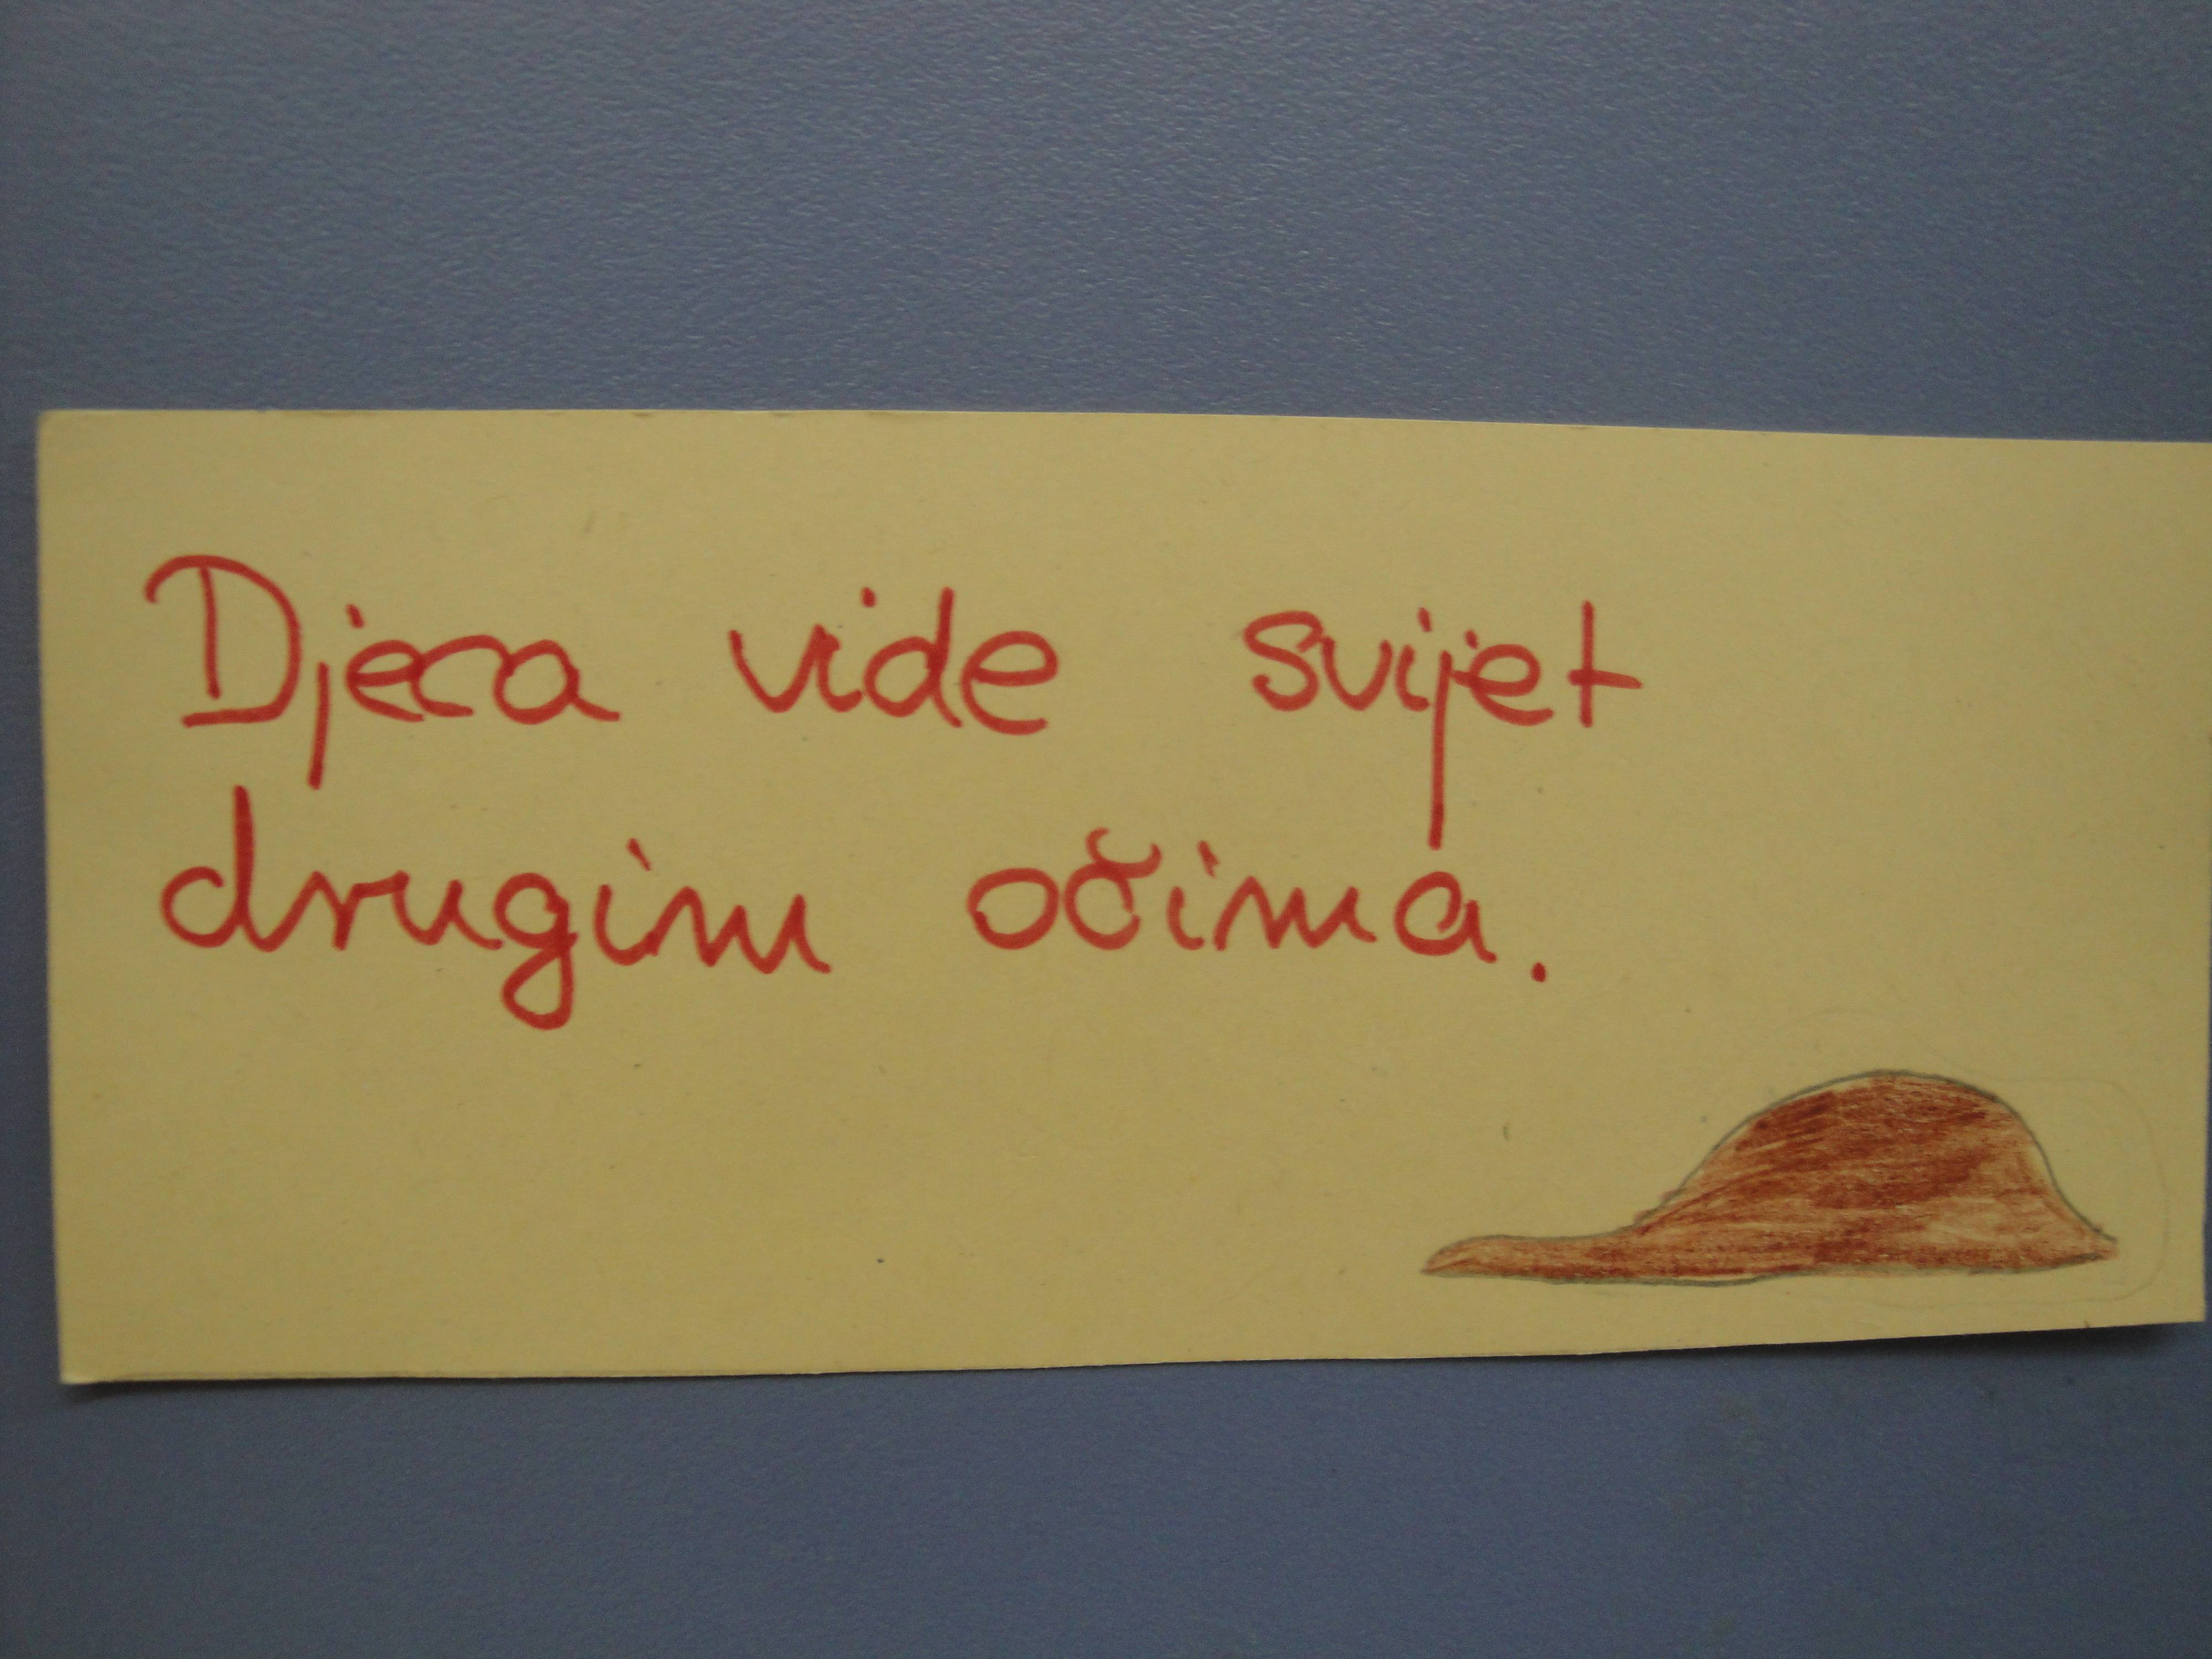 Djeca vide svijet
drugim očima.